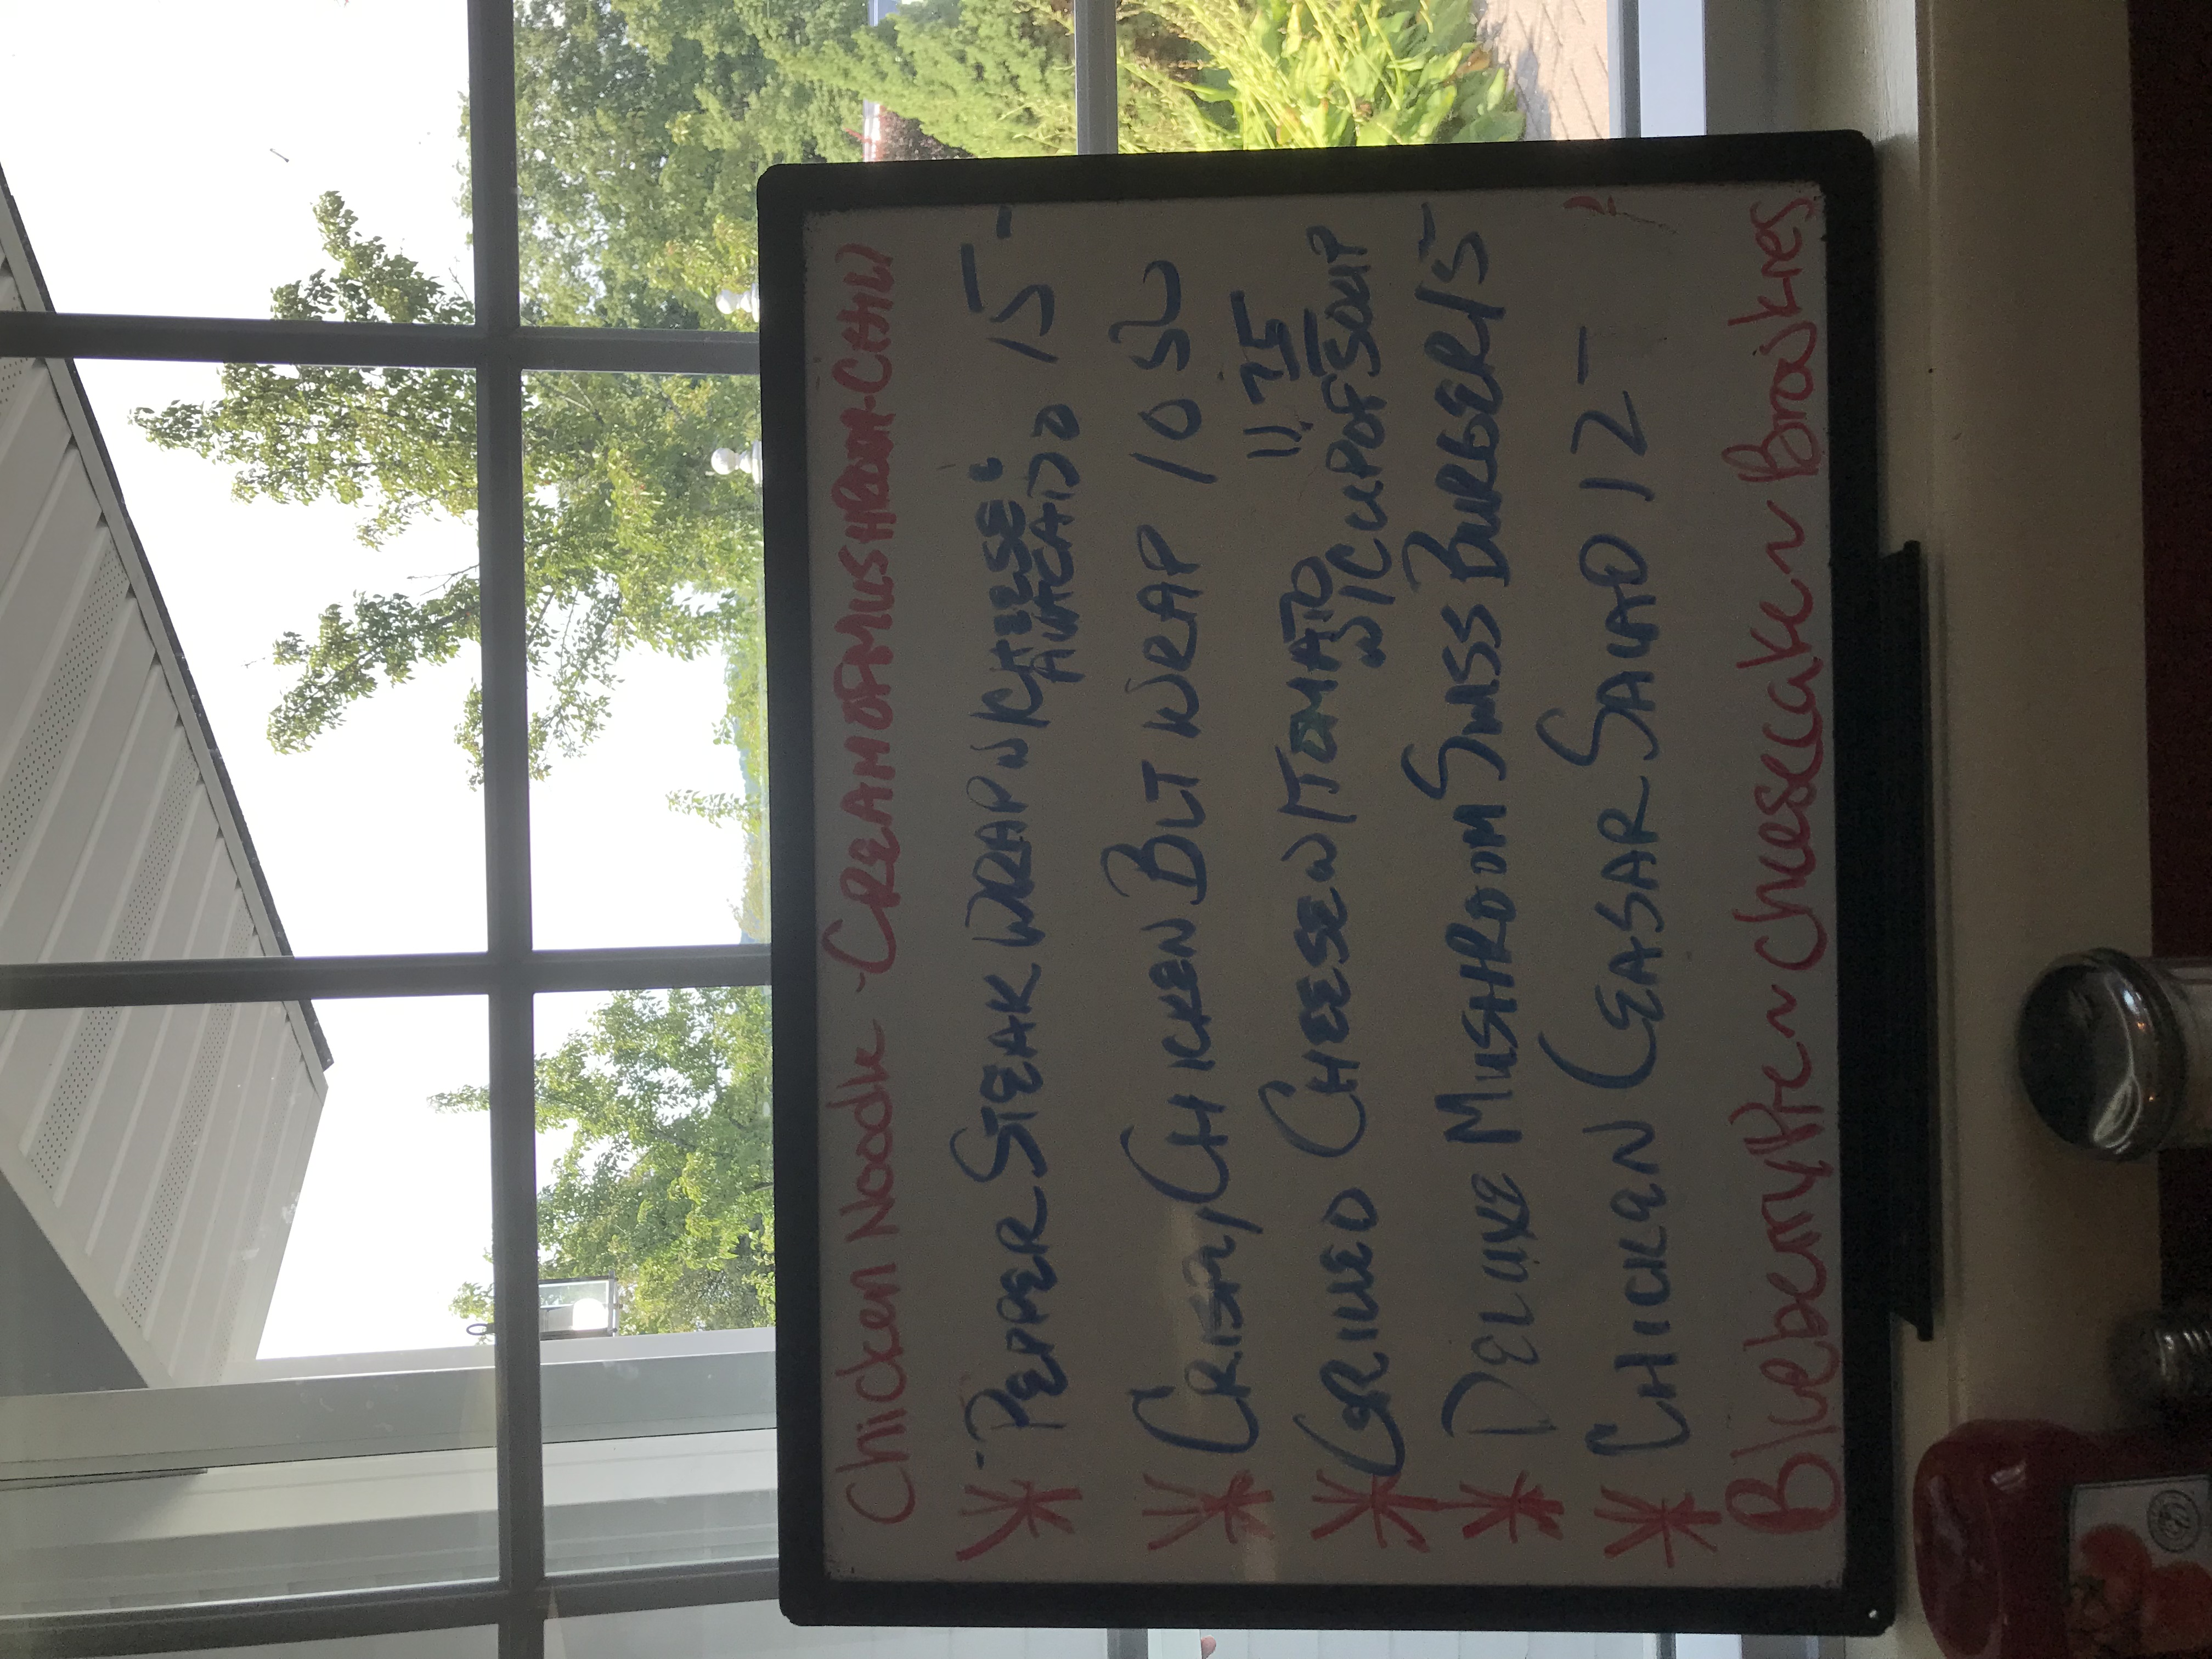 Chicken Noodle - CREAM OF MUSHROOM - CHILI
* PEPPER STEAK WRAP W/ CHEESE &
AVACADO 15-
* CRISPY CHICKEN BLT WRAP 10 50
11.75
* GRILLED CHEESE W/ TOMATO
W/ CUP OF SOUP
* DELUXE MUSHROOM SWISS BURGER 15-
* CHICKEN CEASAR SALAD 12-
Blueberry Pie ~ Cheesecake ~ Brookies